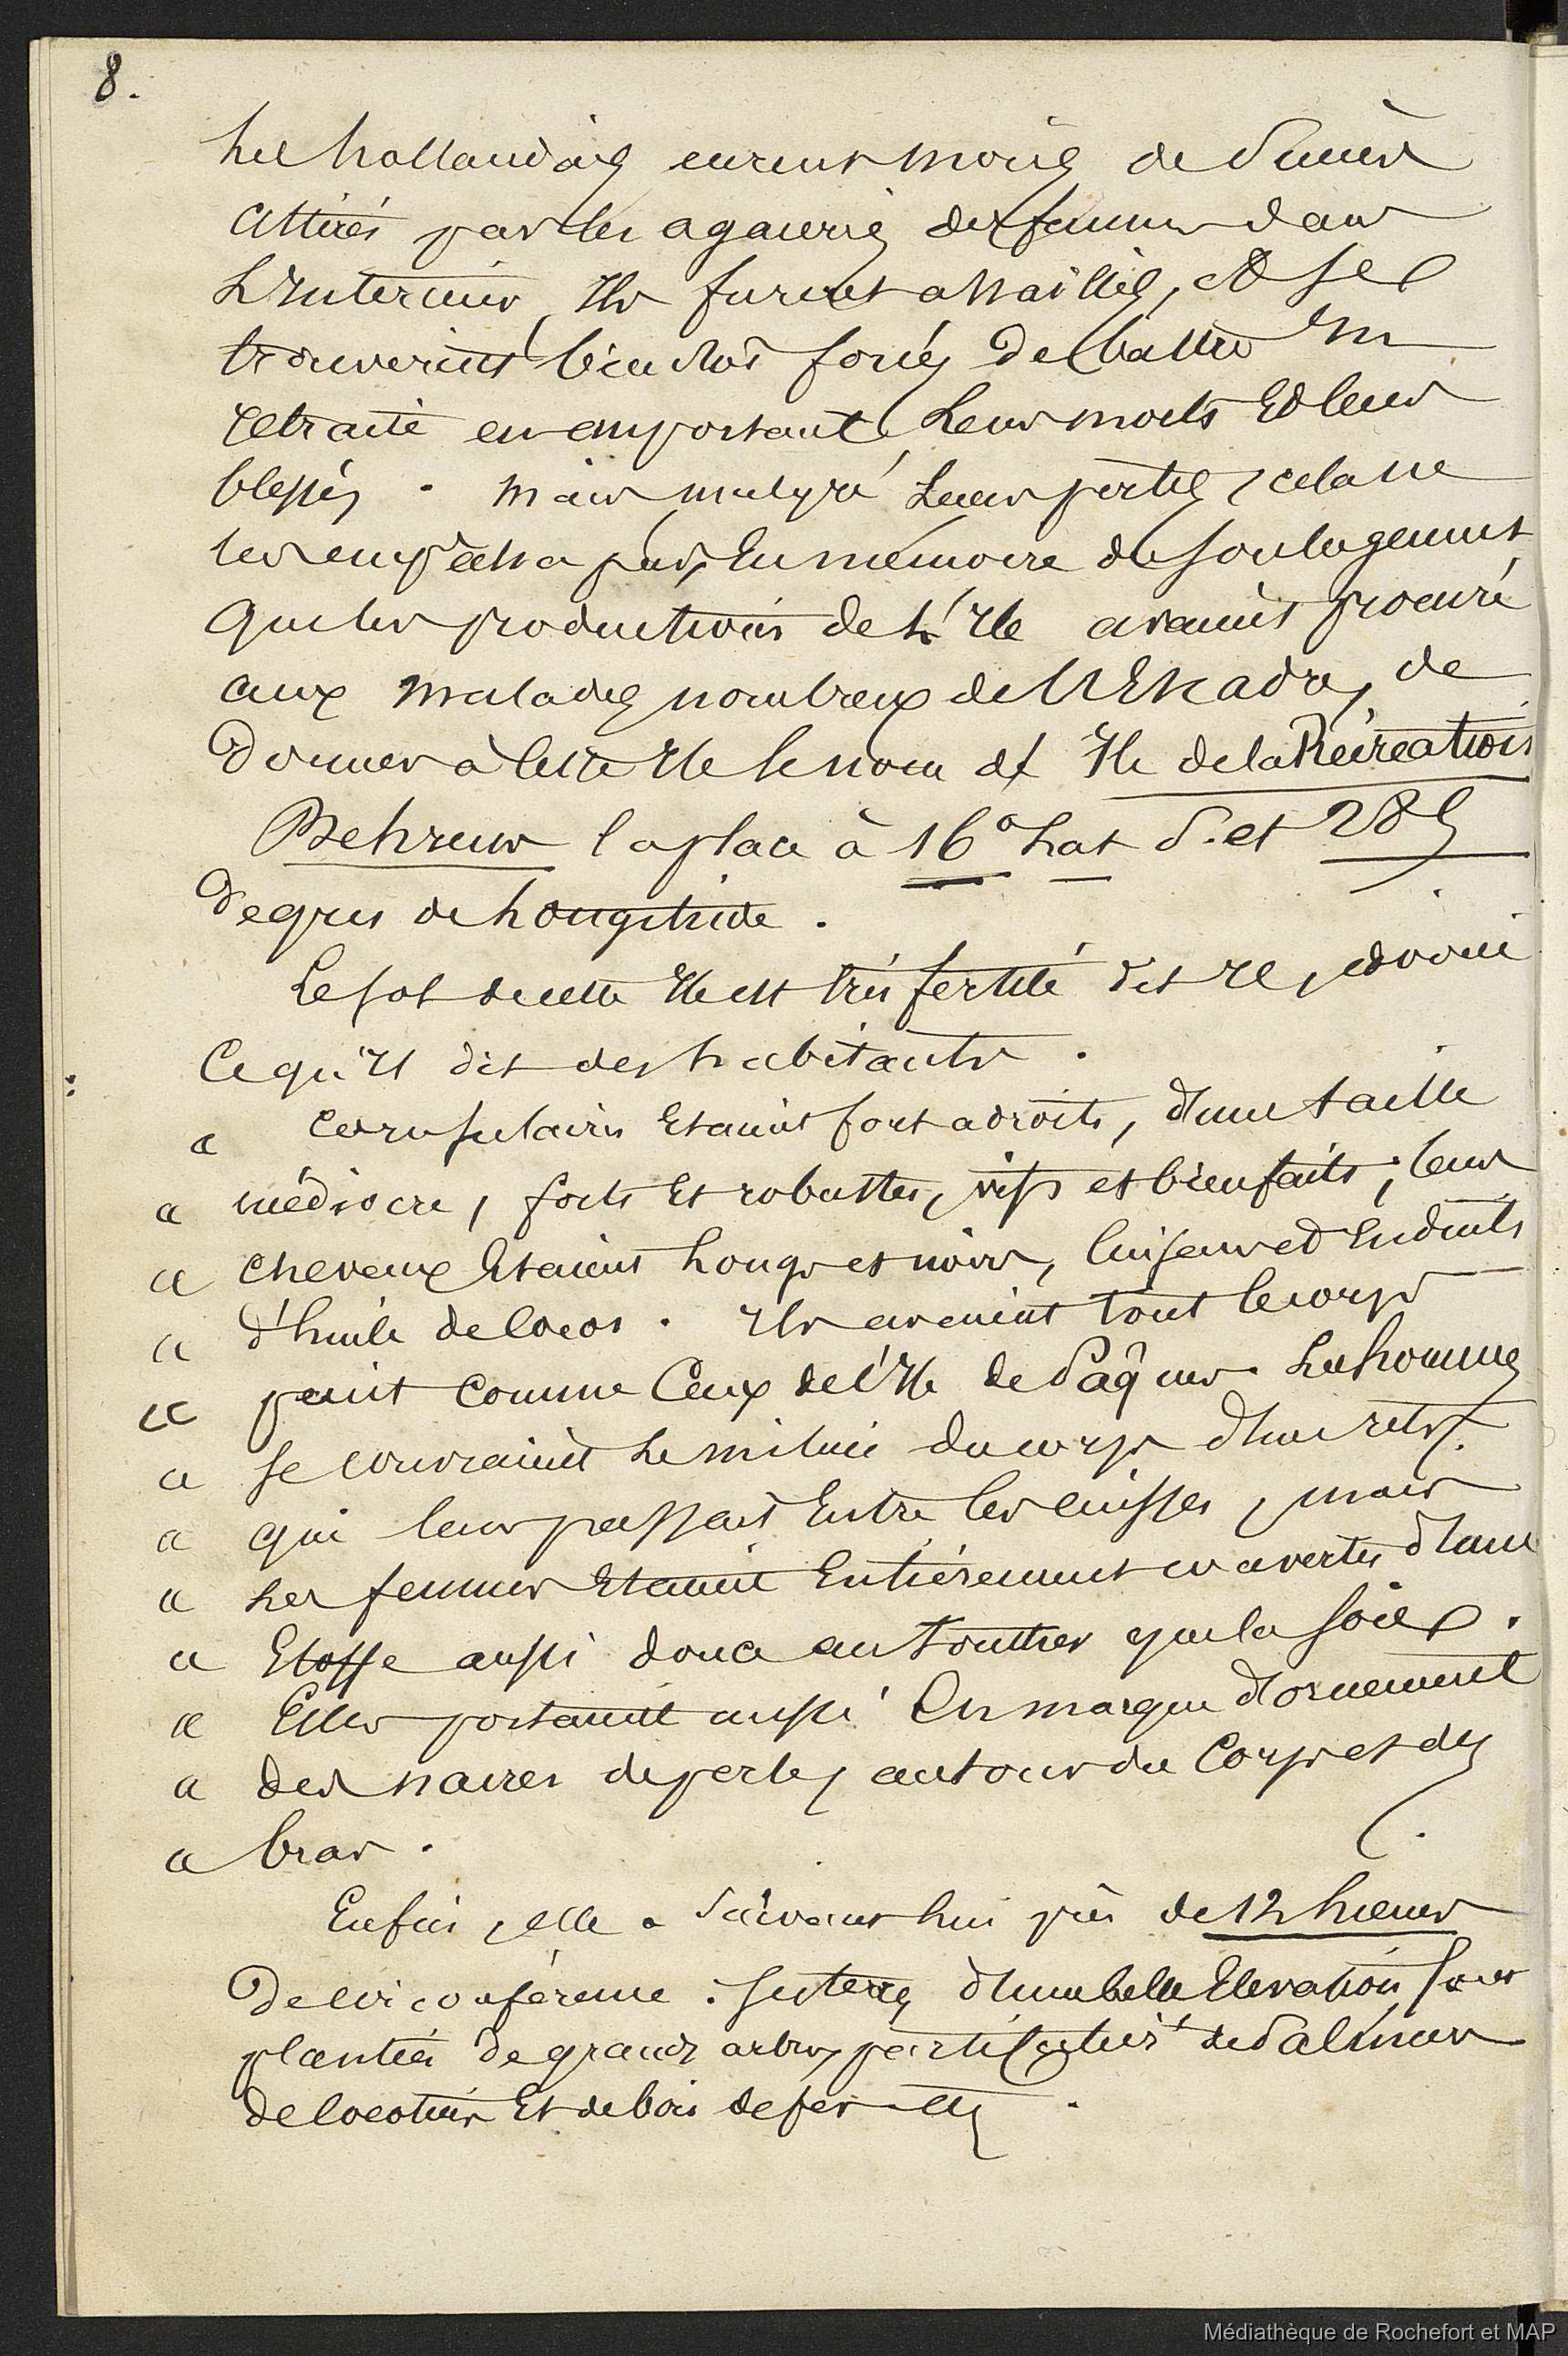 8.
Les hollandais eurent moins de succès
attirés par les agaceries des femmes dans
L'Interieur, Ils furent assaillis, et se
trouverent bientôt forcés de battre en
retraite en emportant Leurs morts Et leurs
blessés. mais malgré Leurs pertes, cela ne
les empêcha pas, En mémoire du soulagement
que les productions de L'Ile avaient procuré
aux malades nombreux de l'Escadre, de
donner à cette Ile le nom de Ile de la Récréation
Behrens la place à 16° Lat S. et 285
degrés de Longitude.
Le sol de cette Ile est très fertile dit Il, et voici
Ce qu'Il dit des habitants.
« Ces insulaires Etaient fort adroits, d'une taille
« médiocre, forts Et robustes, vifs et bien faits; leurs
« cheveux Etaient Longs et noirs, luisans et Enduits
« d'huile de Cocos. Ils avaient tout le corps
« peint comme Ceux de l'Ile de Pâques. Les hommes
« se couvraient Le milieu du corps d'un rets
« qui leur passait Entre les cuisses, mais
« Les femmes Etaient Entiérement couvertes d'une
« Etoffe aussi douce au toucher que la soie.
« Elles portaient aussi En marque d'ornement
« des nacres de perles autour du Corps et des
« bras.
Enfin, elle a suivant lui près de 12 Lieues
De circonférence. Ses terres d'une belle Elevation sont
plantées de grands arbres particulièrt de Palmiers
de Cocotiers Et de bois de fer